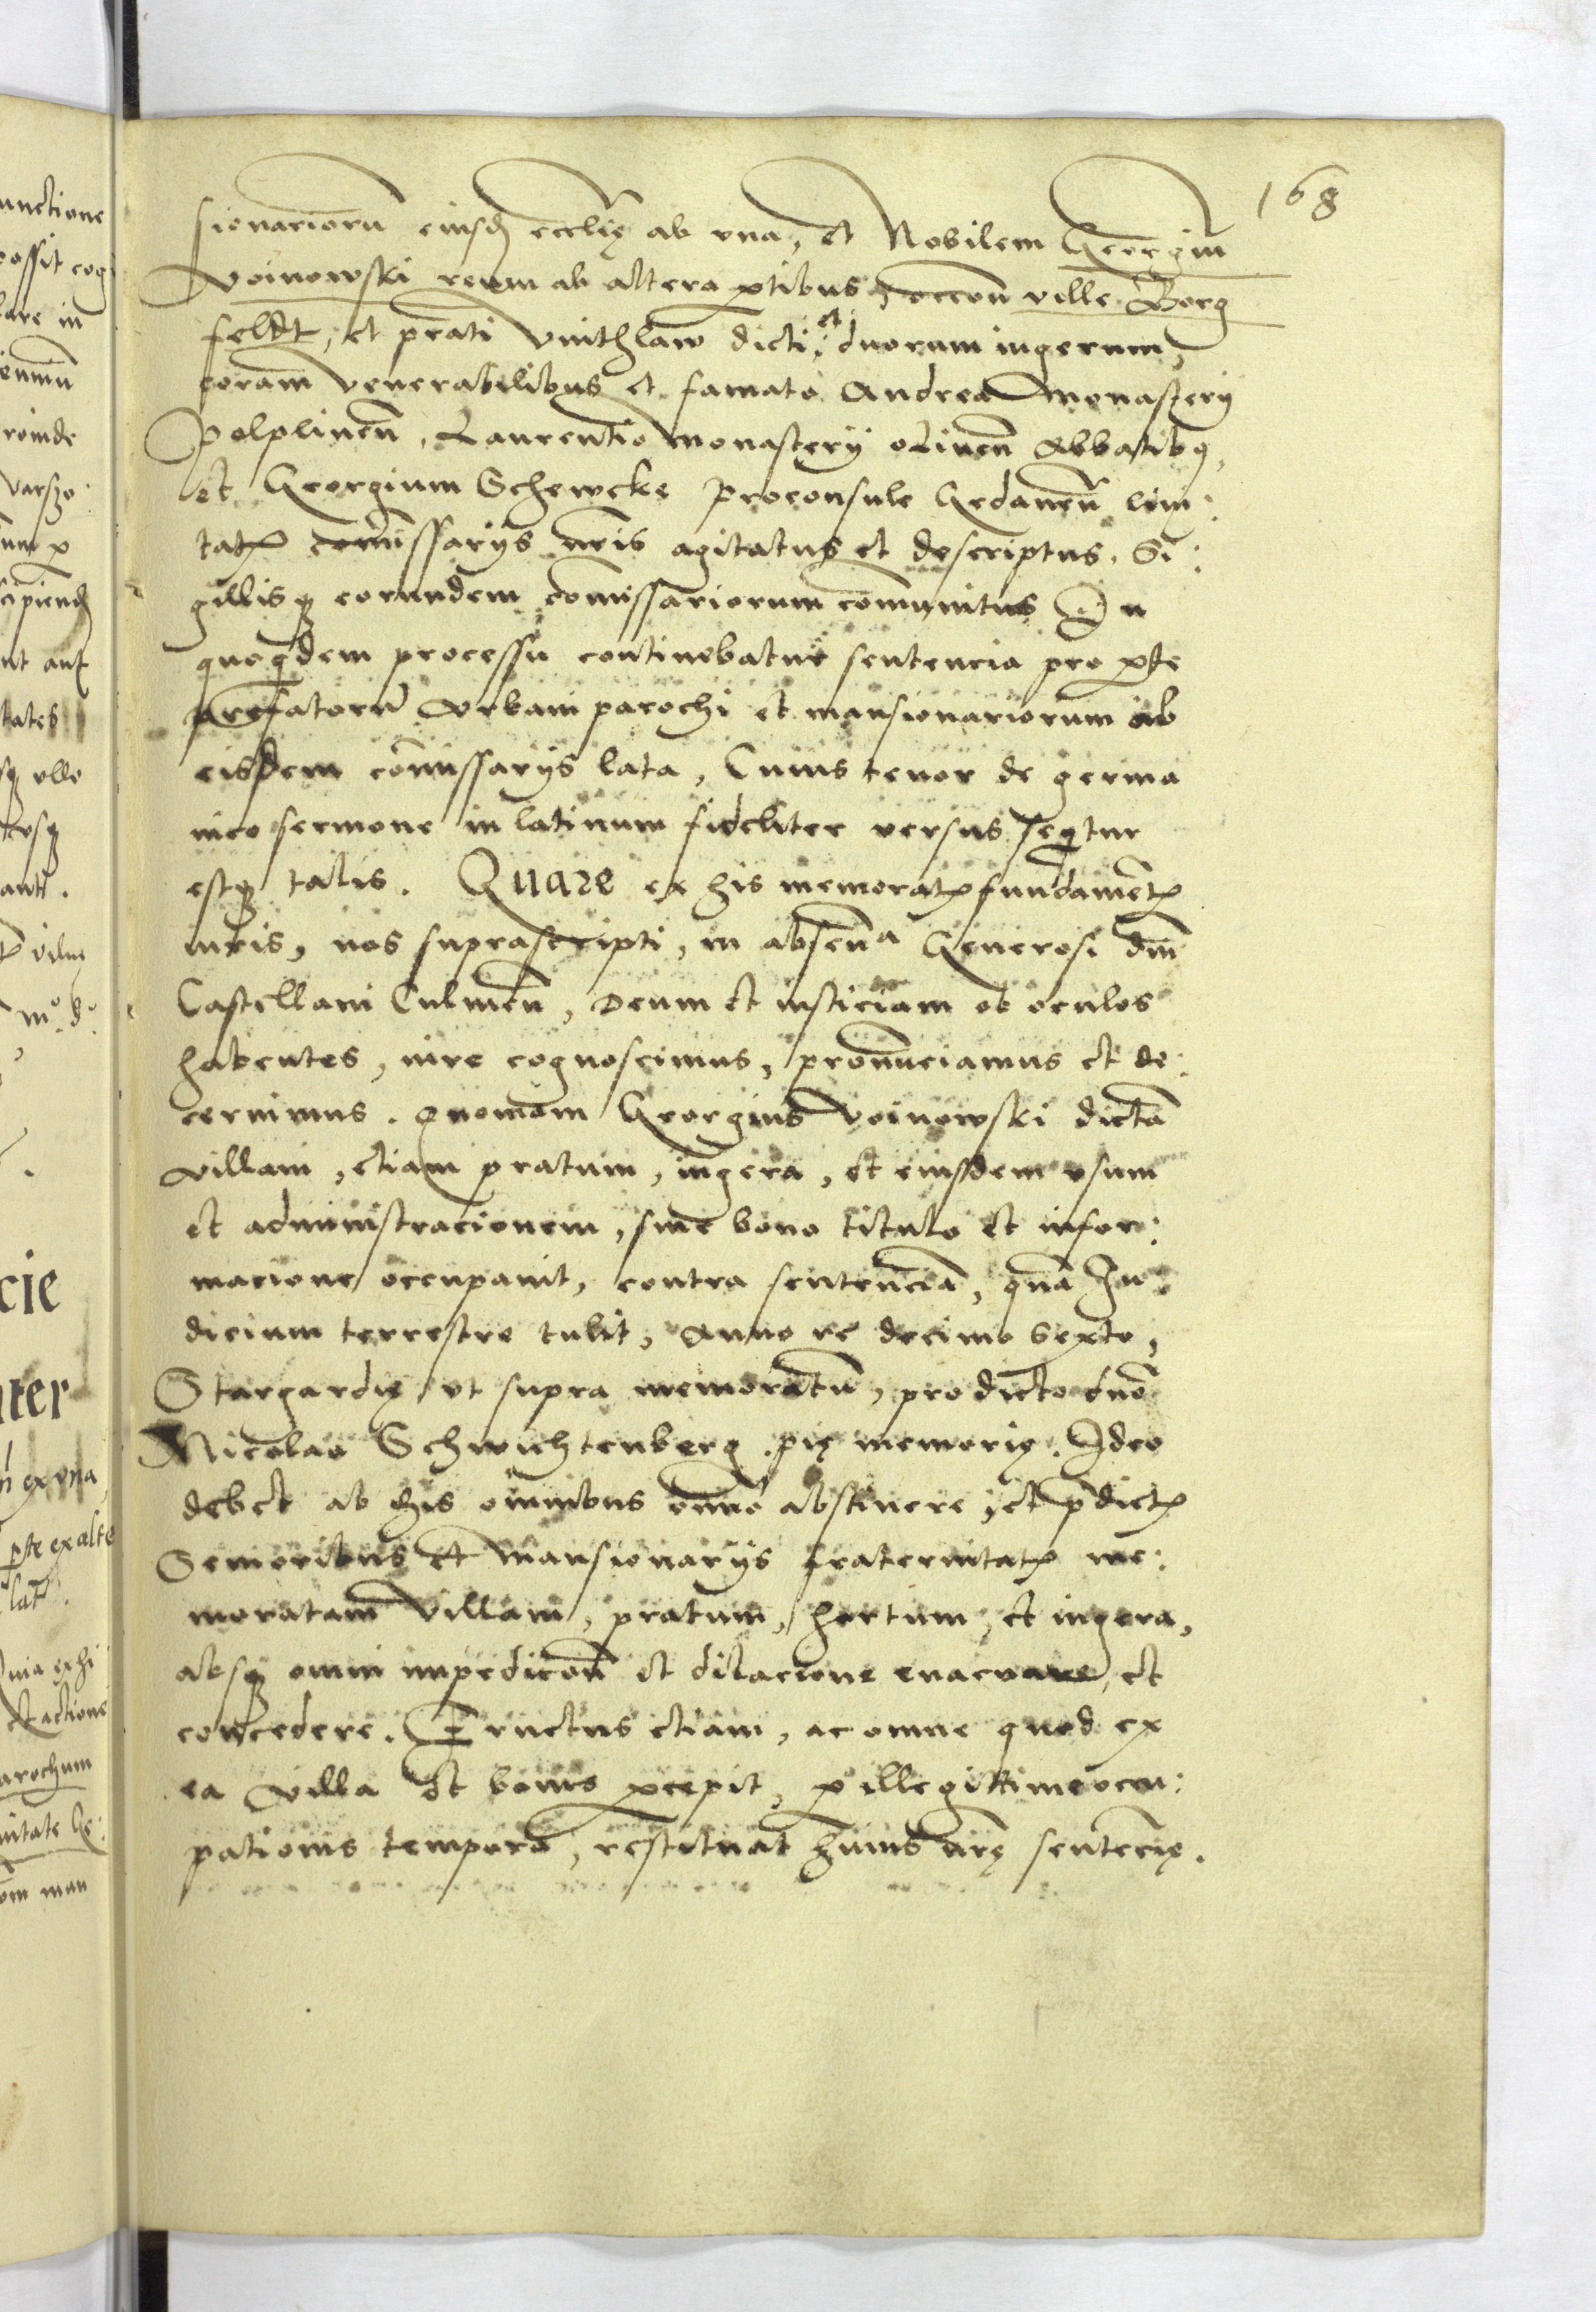 168
sionarioru eiusd eccl̄ie ab vna, et Nobilem Georgiu
Voinowski reum ab altera ptibus, occon ville Borg
feldt, et prati Vuithlaw dicti, et duorum iugerum,
coram Venerabilibus et famato Andrea monastery
Polplinen̄, Laurentio monastery oliuen̄ Abbatibq,
et Georgium Schewcke Proconsule Gedanen̄
comissarys nr̄is agitatus et descriptus, Si:
gillisq eorundem comissariorum comunitus In
quoqdem processu continebatur sentencia pro pte
prefatoru Vrbani parochi et mansionariorum ab
eisdem comissarys lata, Cuius tenor de germa
nico sermone in latinum fideliter versus seqtur
estq talis. Quare ex his memorat fundament
iuris, nos suprascripti, in absen̄a Generosi dni
Castellani Culmen̄, Deum et iusticiam ob oculos
habentes, iure cognoscimus, pronunciamus et de:
cernimus. Quoniam Georgius Voinowski dictā
villam, etiam pratum, iugera, et eiusdem vsum
et administracionem, sine bono titulo et infor:
macione occupauit, contra sentenciā, quā Iu:
dicium terrestre tulit, Anno rē decimo Sexto,
Stargardię, vt supra memoratū, pro dicto dnō
Nicolao Schwichtenberg pię memorię. Ideo
debet ab his omnibus oīno abstinere, et p̄dict
Senioribus et mansionarys fraternitat me:
moratam Villam, pratum, hortum, et iugera,
absq omni impedicon̄ et dilacione euacuare, et
concedere. Fructus etiam, ac omne quod ex
ea Villa et bonis pcepit, p illegittime occu:
pationis tempora, restituat huius nr̄ę sentēcię.